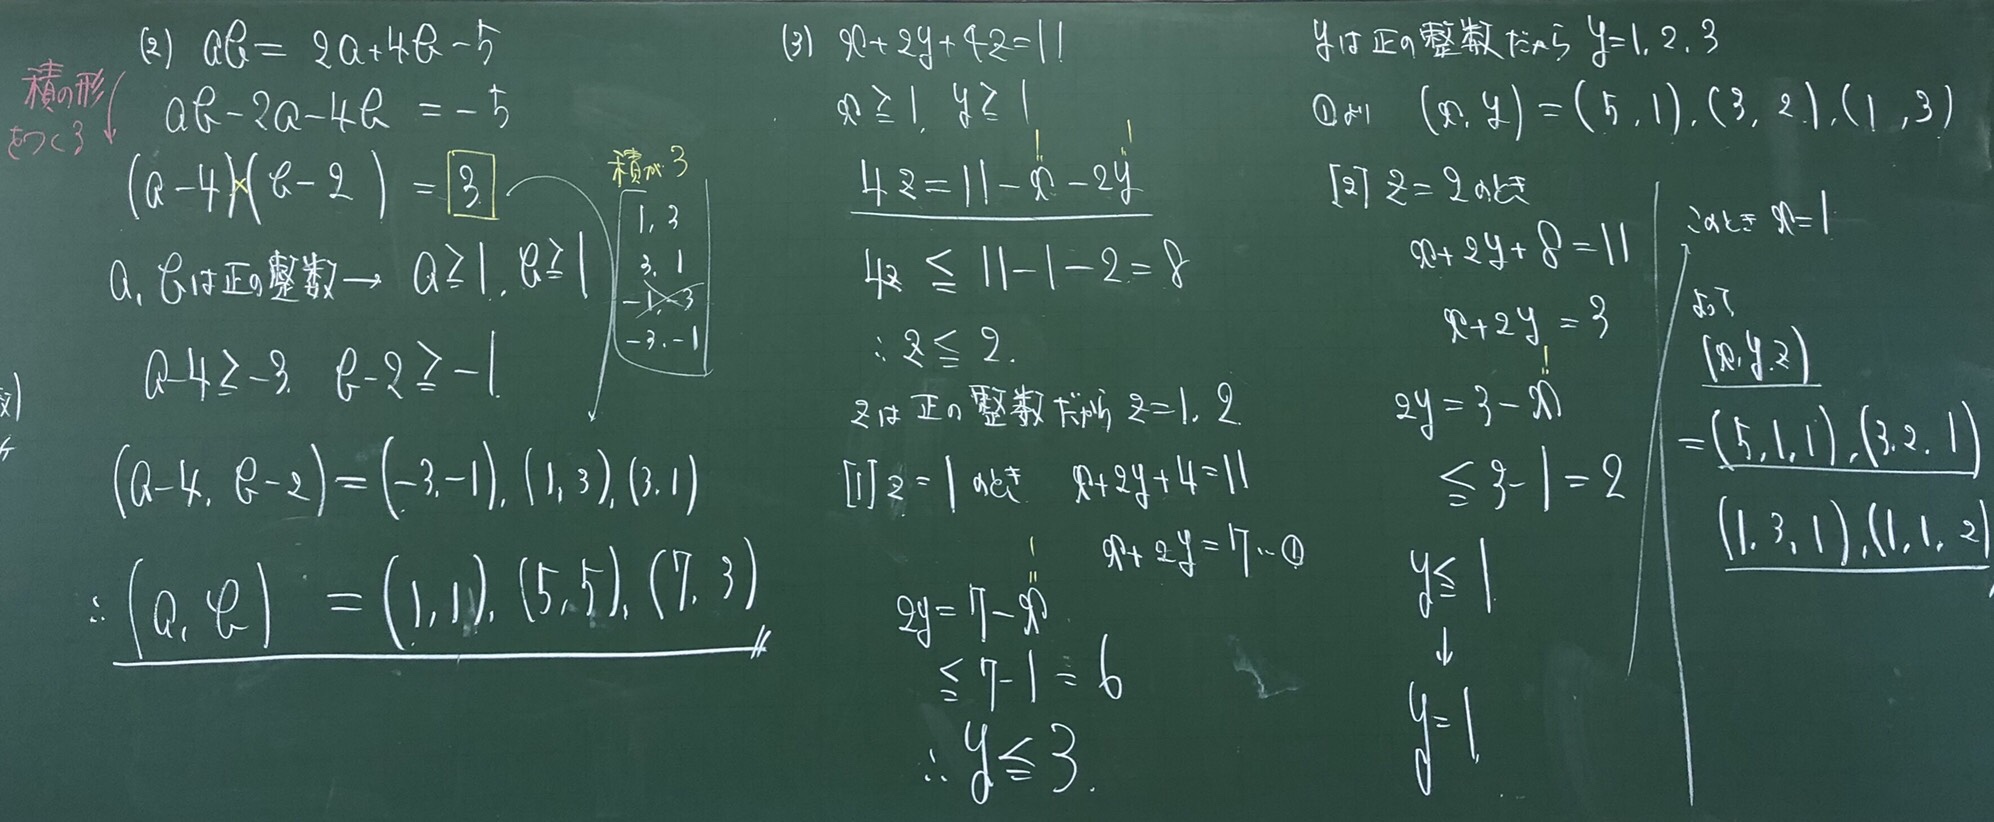 (2) ab = 2a+4b-5
積の形
をつくる
ab-2a-4b = -5
(a-4)×(b-2) = 3
積が3
1, 3
3, 1
-1, -3
-3, -1
a, bは正の整数→ a≧1, b≧1
a-4≧-3, b-2≧-1
(a-4, b-2)=(-3,-1), (1, 3), (3, 1)
∴ (a, b) = (1, 1), (5, 5), (7, 3)
(3) x+2y+4z=11
x≧1, y≧1
4z=11-x-2y
1 1
4z ≦ 11-1-2=8
∴ z≦2.
zは正の整数だから z=1, 2
[1] z=1のとき x+2y+4=11
x+2y=7…①
2y=7-x
1
≦7-1=6
∴ y≦3.
yは正の整数だから y=1, 2, 3
①より (x, y)=(5, 1), (3, 2), (1, 3)
[2] z=2のとき
x+2y+8=11
x+2y=3
2y=3-x
1
≦3-1=2
y≦1
↓
y=1
このとき x=1
よって
(x, y, z)
=(5, 1, 1), (3, 2, 1)
(1, 3, 1), (1, 1, 2)